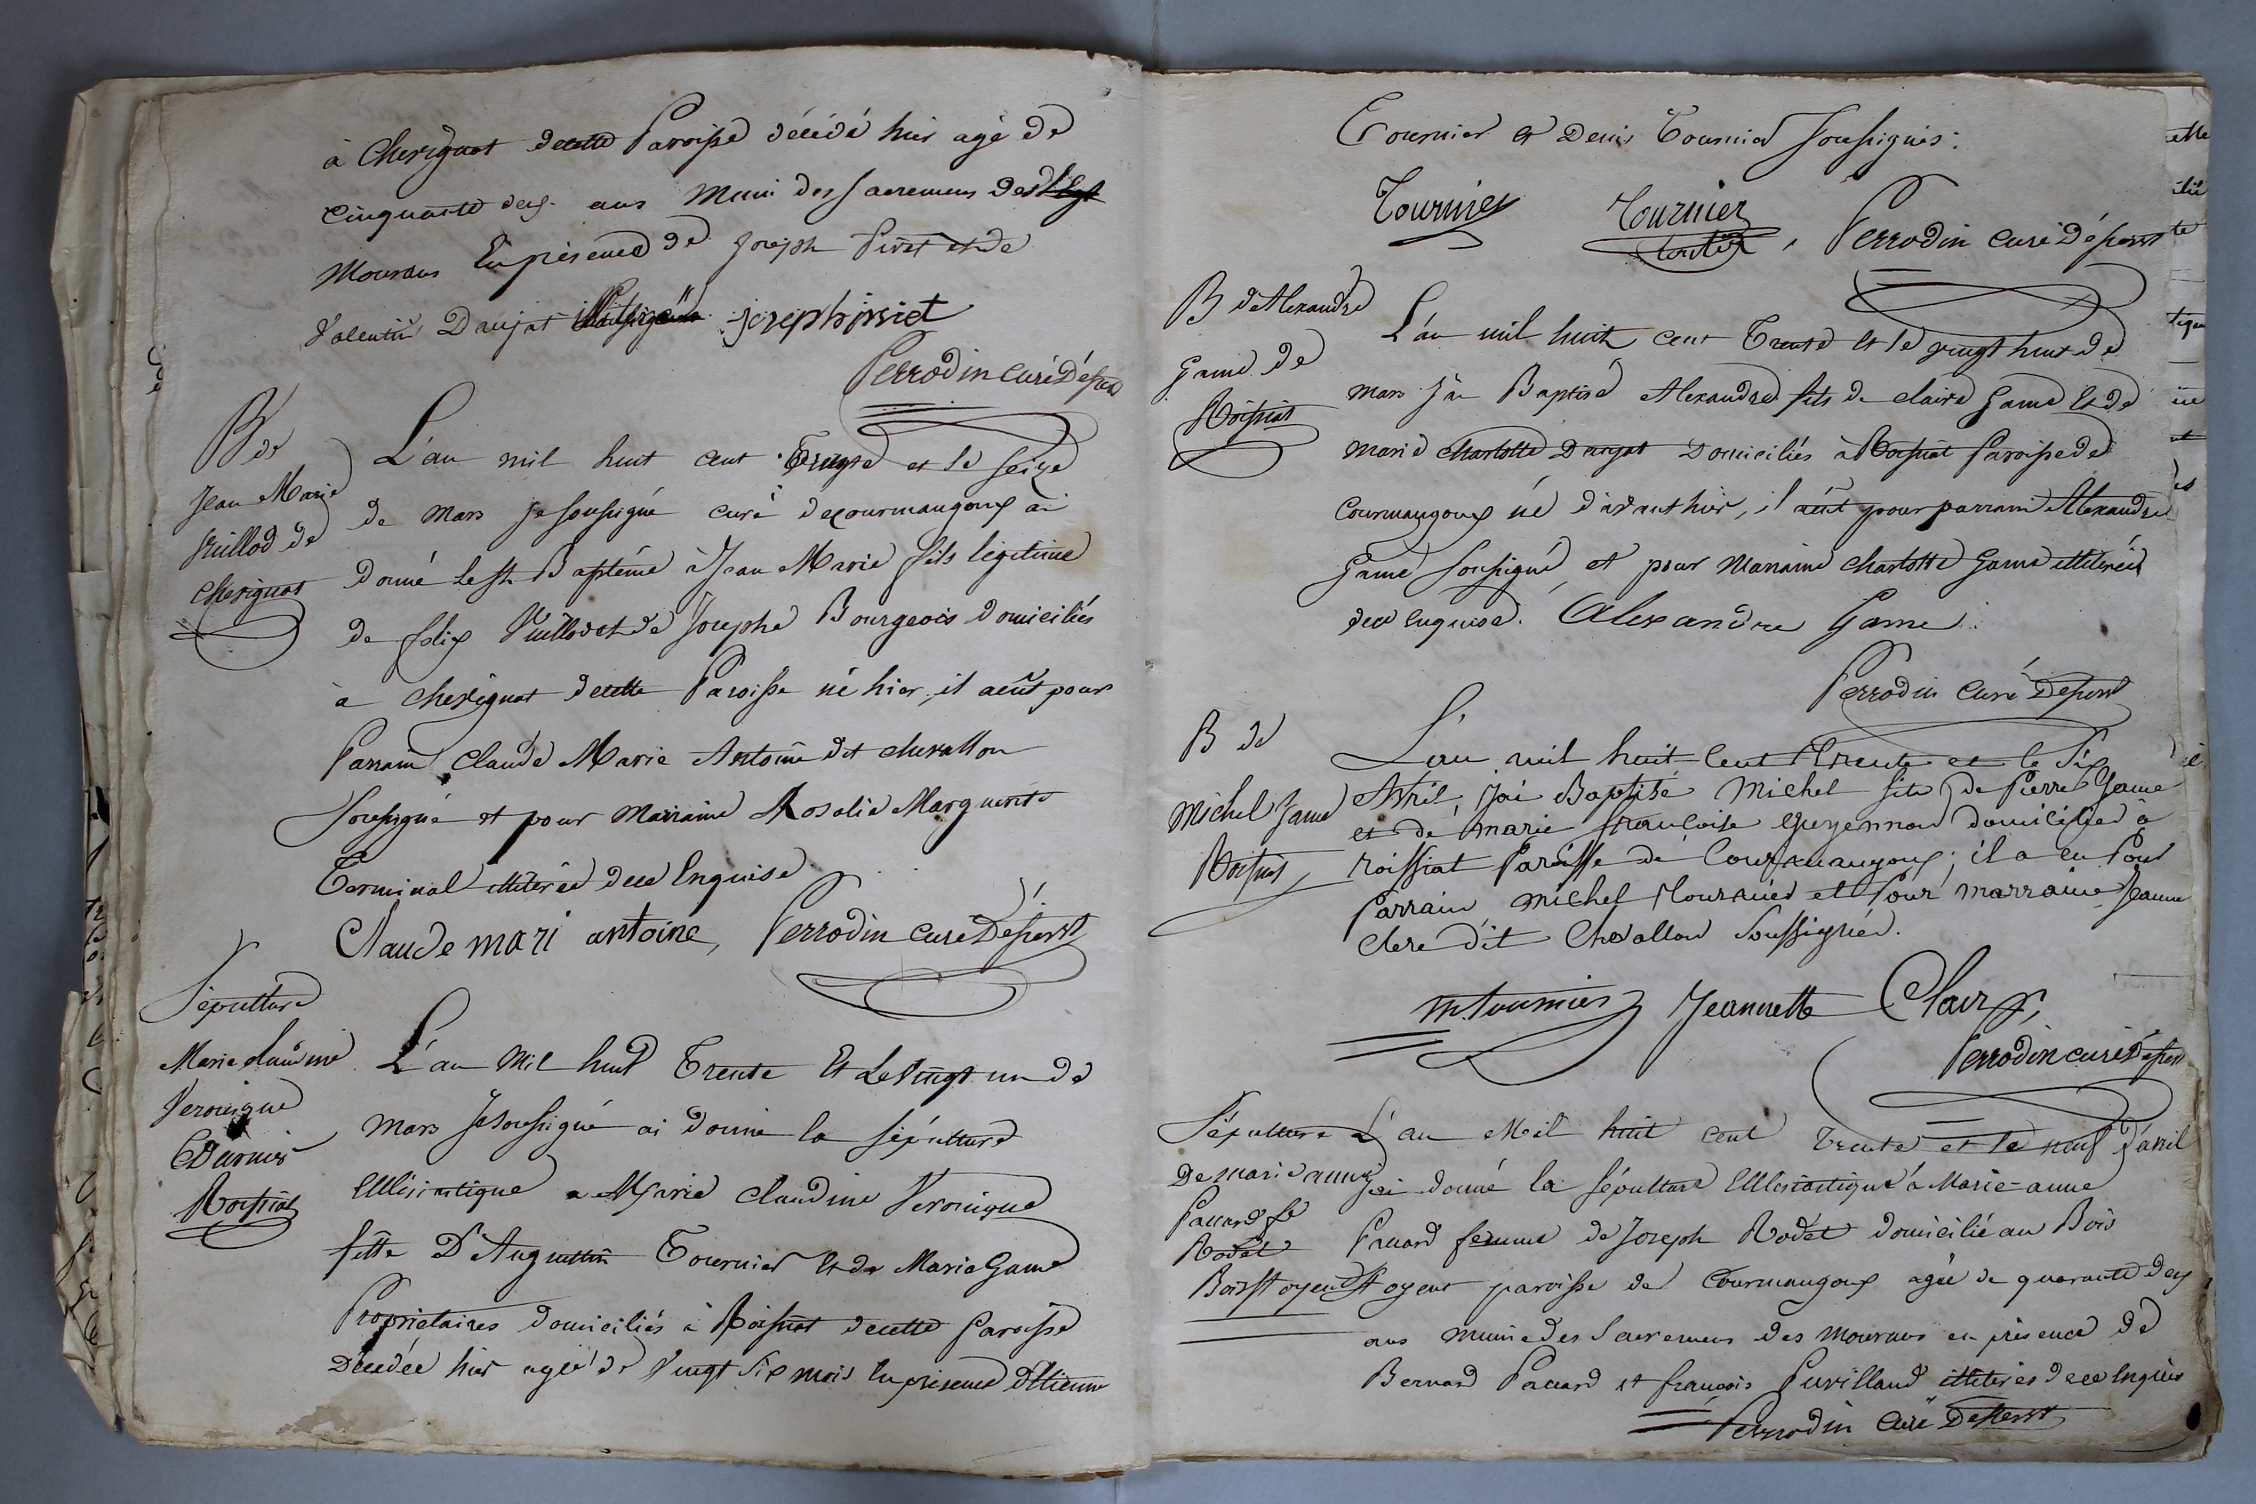 à Cherignat decette Paroisse décédé hier agé de
cinquante deux ans Muni des sacremens des
Mourans En présence de Joseph Pivet et de
Valentin Daujat joseph piviet
Perrodin curé Déserv
B de
Jean Marie
Vuillod de
Cherignat
L'an mil huit cent Trente et le seize
de Mars je soussigné curé decourmangoux ai
Donné le St Baptême à Jean Marie fils légitime
de felix Vuillod et de Josephe Bourgeois domiciliés
à cherignat decette Paroisse né hier, il aeût pour
Parrain Claude Marie Antoine dit chevallon
Soussigné et pour Marraine Rosalie Marguerite
Terminal illiterée dece Enquise
Claude mari antoine, Perrodin curé Desserv
Sépulture
Marie claudine
Veronique
Tournier
Roissiat
L'an Mil huit Trente Et Le Vingt un de
Mars Je soussigné ai donné la sépulture
Ecclésiastique a Marie claudine Veronique
fille D'Augustin Tournier Et de Marie Game
Propriétaires domiciliés à Roissiat decette Paroisse
Décédée hier agée de Vingt six mois En présence d'Etienne
Tournier et Denis Tournier soussignés.
Tournier Tournier Perrodin curé Désserv
B de Alexandre
Game de
Roissiat
L'an mil huit cent Trente et le vingt huit de
Mars J'ai Baptisé Alexandre fils de claire Game et de
Marie charlotte Daujat Domiciliés à Roissiat Paroisse de
Courmangoux né d'avant hier, il aeût pour parrain Alexandre
Game soussigné et pour Marraine charlotte Game illiterée
dece enquise. Alexandre Game
Perrodin Curé Desserv
B de
Michel Game
Roissiat
L'an mil huit Cent Trente et le Six
Avril, j'ai Baptisé Michel fils de Pierre Game
et de marie françoise Guyennon domiciliés à
roissiat Paroisse de Courmangoux; il a eu Pour
Parrain Michel Tournier et Pour marraine Jeanne
Clere dit Chevallon Soussignés.
m. tournier Jeannette Clair
Perrodin curé Desserv
Sépulture
De marie anne
Pauard fe
Rodet
Bois Stoyent
L'an Mil huit cent trente et le neuf d'avril
j'ai donné la sépulture Ecclésiastique à Marie-anne
Pauard femme de Joseph Rodet domicilié au Bois
Stoyent paroisse de Courmangoux agée de quarante deux
ans munie des Sacremens des Mourans en présence de
Bernard Pauard et françois Puvilland illiterés dece Enquis
Perrodin Curé Desserv